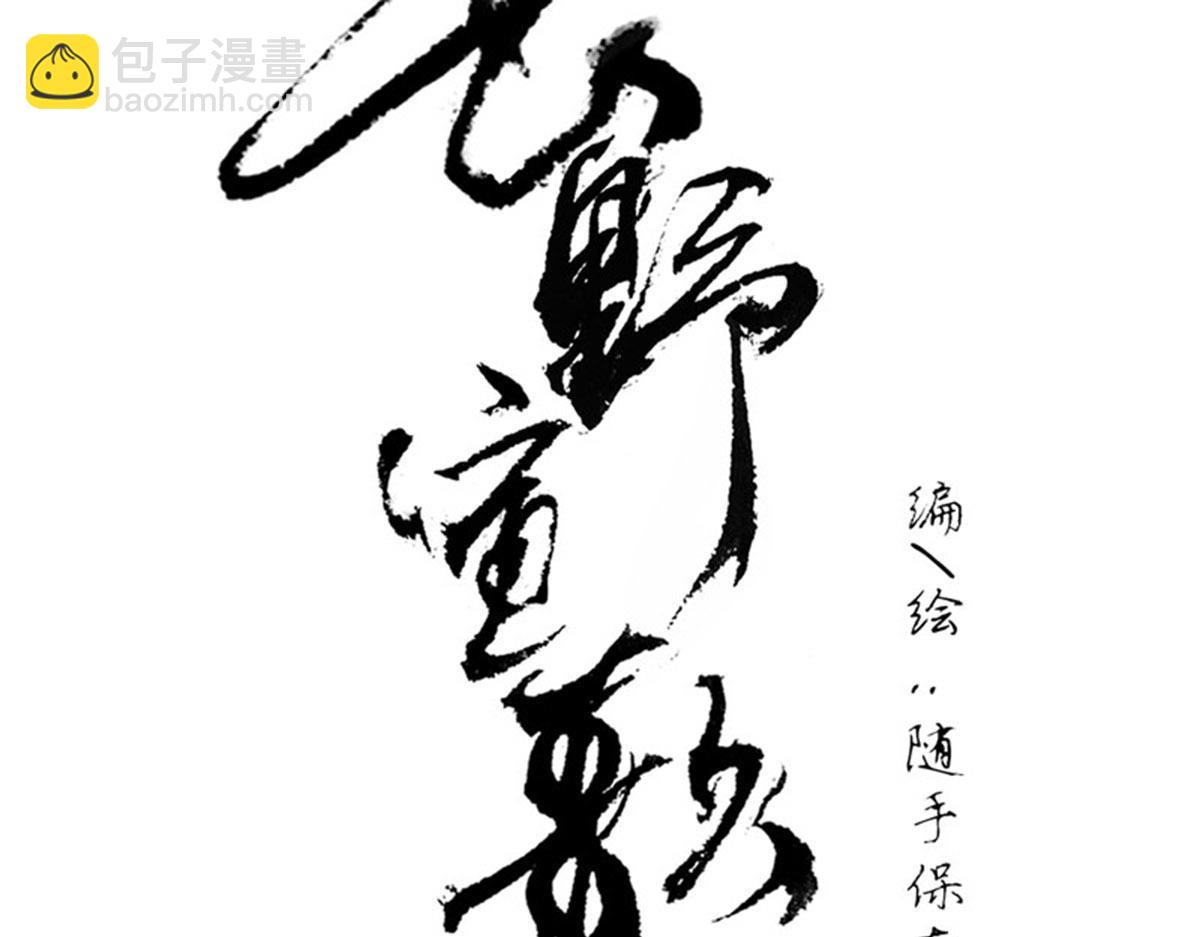 包子漫畫
baozimh.com
野宣
编\绘：随手保